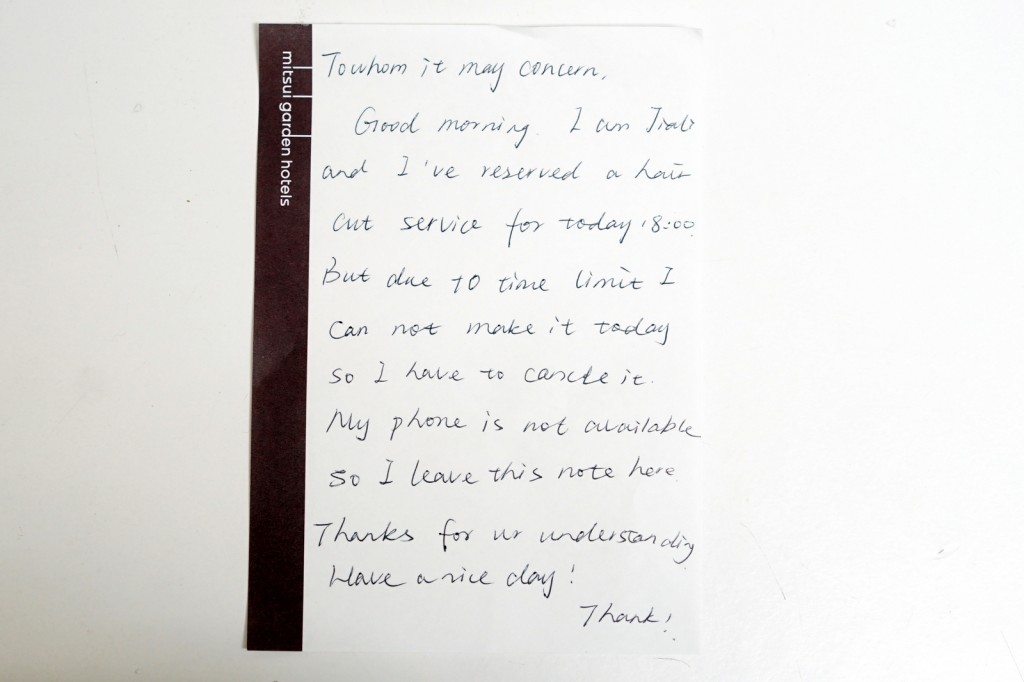 mitsui garden hotels
To whom it may concern,
Good morning. I am
and I've reserved a hair
cut service for today 18:00.
But due to time limit I
can not make it today
so I have to cancle it.
My phone is not available
so I leave this note here.
Thanks for ur understanding
Have a nice day!
Thank!